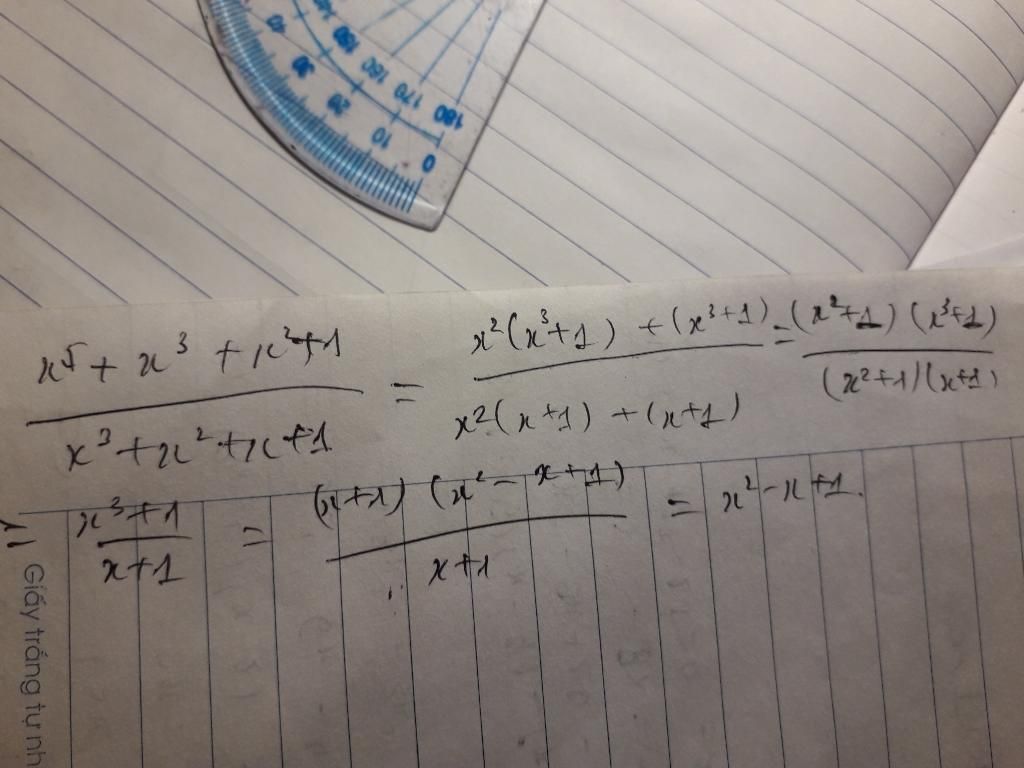 180 170 160 150
0 10 20 30
x⁵ + x³ + x² + 1 / x³ + x² + x + 1 = x²(x³+1) + (x³+1) / x²(x+1) + (x+1) = (x²+1)(x³+1) / (x²+1)(x+1)
= x³+1 / x+1 = (x+1)(x² - x+1) / x+1 = x² - x + 1.
Giấy trắng tự nh